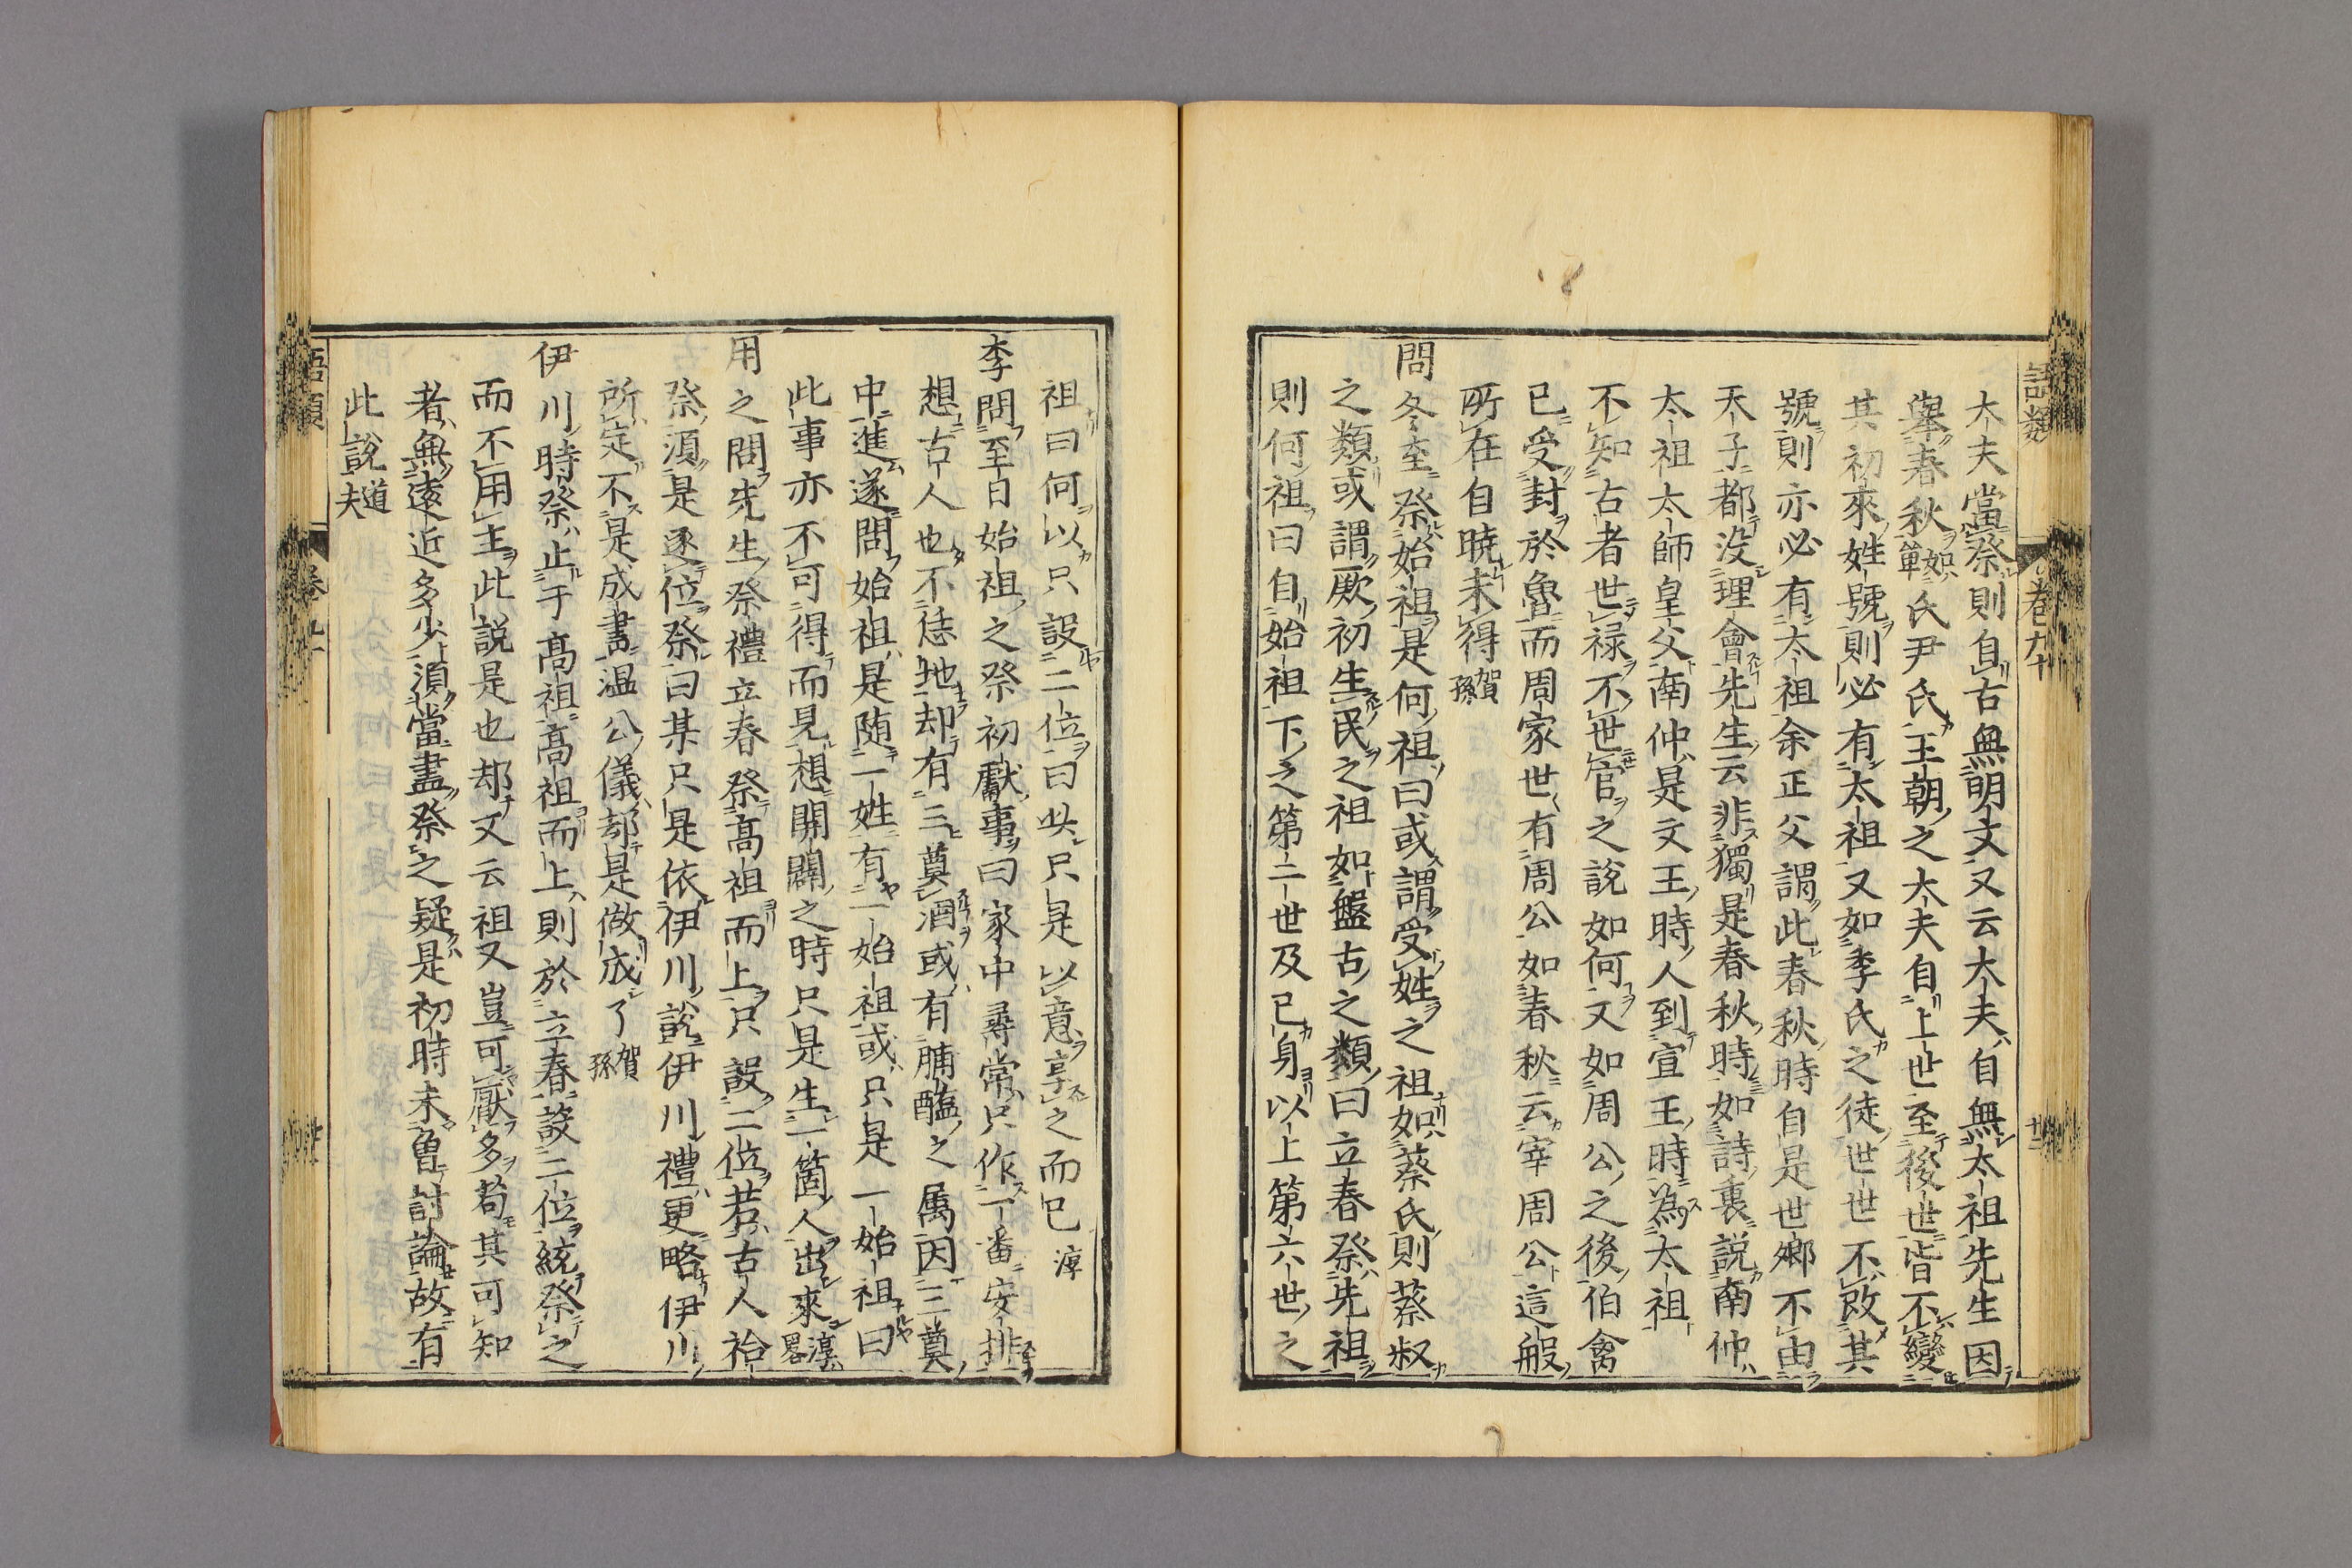 語類 卷九十 廿二
大夫當祭則自古無明文又云大夫自無太祖先生因
舉春秋如單氏尹氏王朝之大夫自上世至後世皆不變
其初來姓號則必有太祖又如季氏之徒世世不改其
號則亦必有太祖余正父謂此春秋時自是世卿不由
天子都没理會先生云非獨是春秋時如詩裏説南仲
太祖太師皇父南仲是文王時人到宣王時為太祖
不知古者世禄不世官之說如何又如周公之後伯禽
已受封於魯而周家世有周公如春秋云宰周公這般
所在自曉未得賀孫
問冬至祭始祖是何祖曰或謂受姓之祖如蔡氏則蔡叔
之類或謂厥初生民之祖如盤古之類曰立春祭先祖
則何祖曰自始祖下之第二世及已身以上第六世之
祖曰何以只設二位曰此只是以意享之而已淳
李問至日始祖之祭初獻事曰家中尋常只作一番安排
想古人也不恁地却有三奠酒或有脯醢之属因三奠
中進遂問始祖是随一姓有一始祖或只是一始祖曰
此事亦不可得而見想開闢之時只是生一箇人出來淳畧
用之問先生祭禮立春祭高祖而上只設二位若古人祫
祭須是逐位祭曰某只是依伊川説伊川禮更略伊川
所定不是成書温公儀却是做成了賀孫
伊川時祭止于高祖高祖而上則於立春設二位統祭之
而不用主此説是也却又云祖又豈可厭多苟其可知
者無遠近多少須當盡祭之疑是初時未曾討論故有
此說道夫
語類 卷